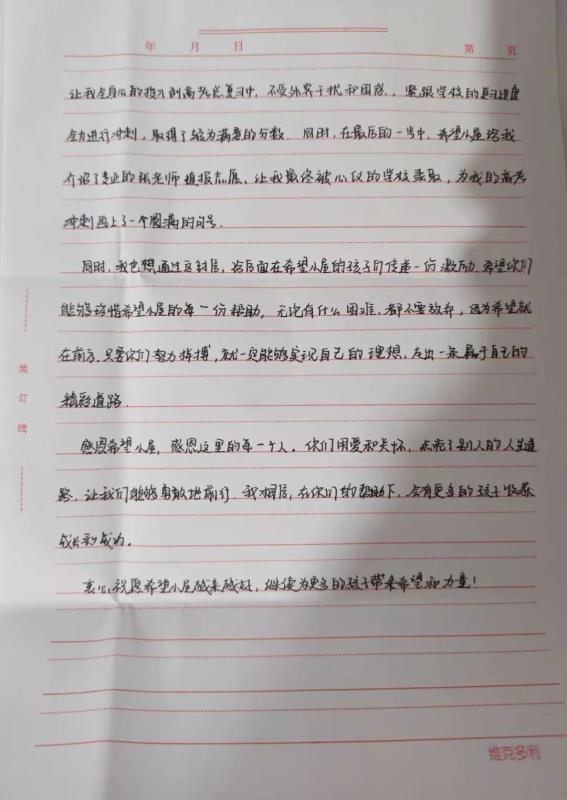 年 月 日 第 页
让我全身心的投入到高考总复习中，不受外界干扰和困惑，紧跟学校的复习进度
全力进行冲刺，取得了较为满意的分数．同时，在最后的一步中，希望小屋给我
介绍了专业的张老师填报志愿，让我最终被心仪的学校录取，为我的高考
冲刺画上了一个圆满的句号．
同时，我也想通过这封信，给后面在希望小屋的孩子们传递一份激励．希望你们
能够珍惜希望小屋的每一份帮助，无论有什么困难，都不要放弃，因为希望就
在前方．只要你们努力拼搏，就一定能够实现自己的理想，走出一条属于自己的
精彩道路．
感恩希望小屋，感恩这里的每一个人．你们用爱和关怀，点亮了别人的人生道
路，让我们能够勇敢地前行．我相信，在你们的帮助下，会有更多的孩子收获
成长和成功。
衷心祝愿希望小屋越来越好，继续为更多的孩子带来希望和力量！
装订线
维克多利